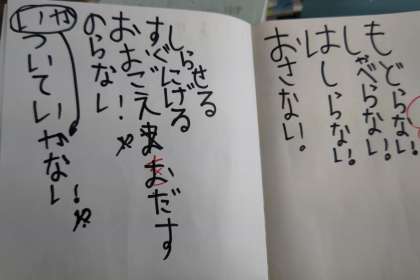 もどらない!
しゃべらない!
はしらない!
おさない!
しらせる
すぐにげる
おおごえおだす
のらない!
いか
ついていかない!